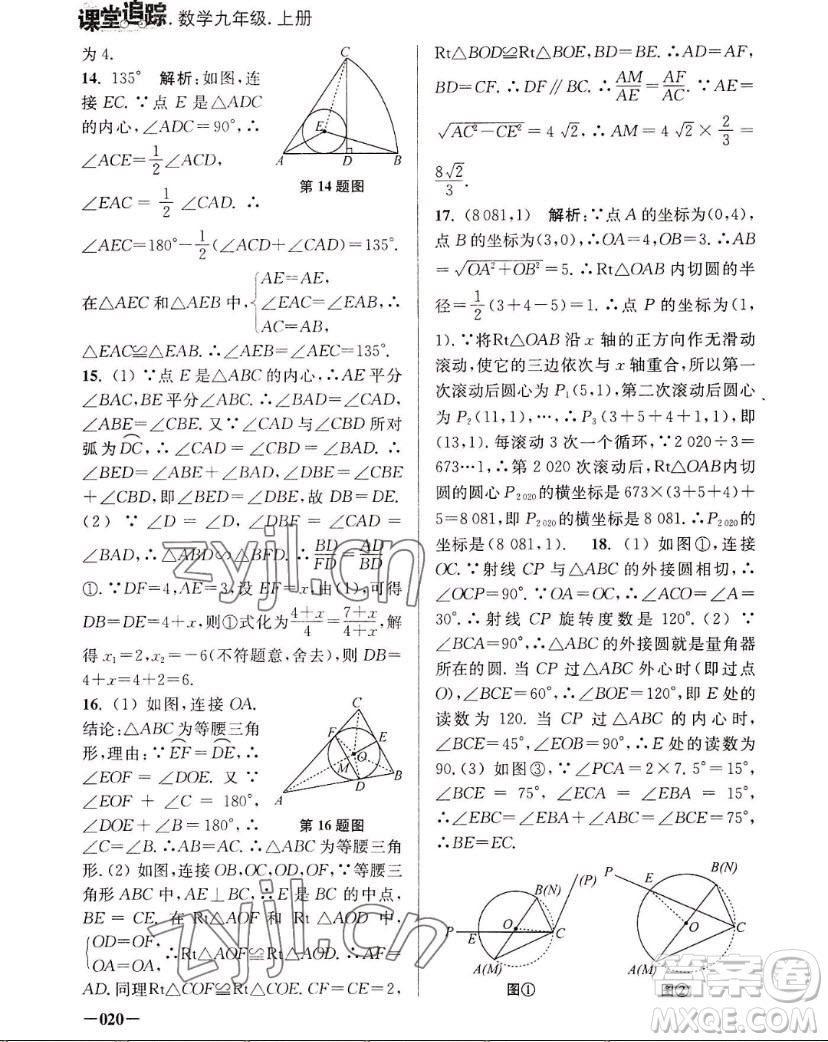 课堂追踪. 数学九年级. 上册
为 4.
14. 135°　解析:如图,连
接 EC. ∵点 E 是△ADC
的内心,∠ADC=90°,∴
∠ACE=1/2∠ACD,
∠EAC=1/2∠CAD. ∴
∠AEC=180°−1/2(∠ACD+∠CAD)=135°.
在△AEC 和△AEB 中,{AE=AE,
∠EAC=∠EAB, ∴
AC=AB,
△EAC≌△EAB. ∴∠AEB=∠AEC=135°.
C
E
A
D
B
第 14 题图
15. (1) ∵点 E 是△ABC 的内心,∴AE 平分
∠BAC,BE 平分∠ABC. ∴∠BAD=∠CAD,
∠ABE=∠CBE. 又∵∠CAD 与∠CBD 所对
弧为DC⌒,∴∠CAD=∠CBD=∠BAD. ∴
∠BED=∠ABE+∠BAD,∠DBE=∠CBE
+∠CBD,即∠BED=∠DBE,故 DB=DE.
(2) ∵ ∠D=∠D,∠DBF=∠CAD=
∠BAD,∴△ABD∽△BFD. ∴BD/FD=AD/BD
①. ∵DF=4,AE=3,设 EF=x,由(1),可得
DB=DE=4+x,则①式化为(4+x)/4=(7+x)/(4+x),解
得 x₁=2,x₂=−6(不符题意,舍去),则 DB=
4+x=4+2=6.
16. (1) 如图,连接 OA.
结论:△ABC 为等腰三角
形,理由:∵EF⌒=DE⌒,∴
∠EOF=∠DOE. 又∵
∠EOF+∠C=180°,
∠DOE+∠B=180°,∴
C
F
E
O
M
B
A
D
第 16 题图
∠C=∠B. ∴AB=AC. ∴△ABC 为等腰三角
形. (2) 如图,连接 OB,OC,OD,OF,∵等腰三
角形 ABC 中,AE⊥BC,∴E 是 BC 的中点,
BE=CE. 在 Rt△AOF 和 Rt△AOD 中,
{OD=OF,
OA=OA, ∴Rt△AOF≌Rt△AOD. ∴AF=
AD. 同理Rt△COF≌Rt△COE. CF=CE=2,
—020—
Rt△BOD≌Rt△BOE,BD=BE. ∴AD=AF,
BD=CF. ∴DF∥BC. ∴AM/AE=AF/AC. ∵AE=
√(AC²−CE²)=4√2,∴AM=4√2×2/3=
8√2/3.
17. (8 081,1)　解析:∵点 A 的坐标为(0,4),
点 B 的坐标为(3,0),∴OA=4,OB=3. ∴AB
=√(OA²+OB²)=5. ∴Rt△OAB 内切圆的半
径=1/2(3+4−5)=1. ∴点 P 的坐标为(1,
1). ∵将Rt△OAB 沿 x 轴的正方向作无滑动
滚动,使它的三边依次与 x 轴重合,所以第一
次滚动后圆心为 P₁(5,1),第二次滚动后圆心
为 P₂(11,1),…,∴P₃(3+5+4+1,1),即
(13,1). 每滚动 3 次一个循环,∵2 020÷3=
673…1,∴第 2 020 次滚动后,Rt△OAB 内切
圆的圆心 P₂₀₂₀的横坐标是 673×(3+5+4)+
5=8 081,即 P₂₀₂₀的横坐标是 8 081. ∴P₂₀₂₀的
坐标是(8 081,1)　18. (1) 如图①,连接
OC. ∵射线 CP 与△ABC 的外接圆相切,∴
∠OCP=90°. ∵OA=OC,∴∠OCA=∠A=
30°. ∴射线 CP 旋转度数是 120°. (2) ∵
∠BCA=90°,∴△ABC 的外接圆就是量角器
所在的圆. 当 CP 过△ABC 外心时(即过点
O),∠BCE=60°,∴∠BOE=120°,即 E 处的
读数为 120. 当 CP 过△ABC 的内心时,
∠BCE=45°,∠EOB=90°,∴E 处的读数为
90. (3) 如图③,∵∠PCA=2×7. 5°=15°,
∠BCE=75°,∠ECA=∠EBA=15°,
∴∠EBC=∠EBA+∠ABC=∠BCE=75°,
∴BE=EC.
B(N)
(P)
P
E
O
C
A(M)
图①
P
E
B(N)
O
C
A(M)
图②
zyjl.cn
zyjl.cn
答案卷